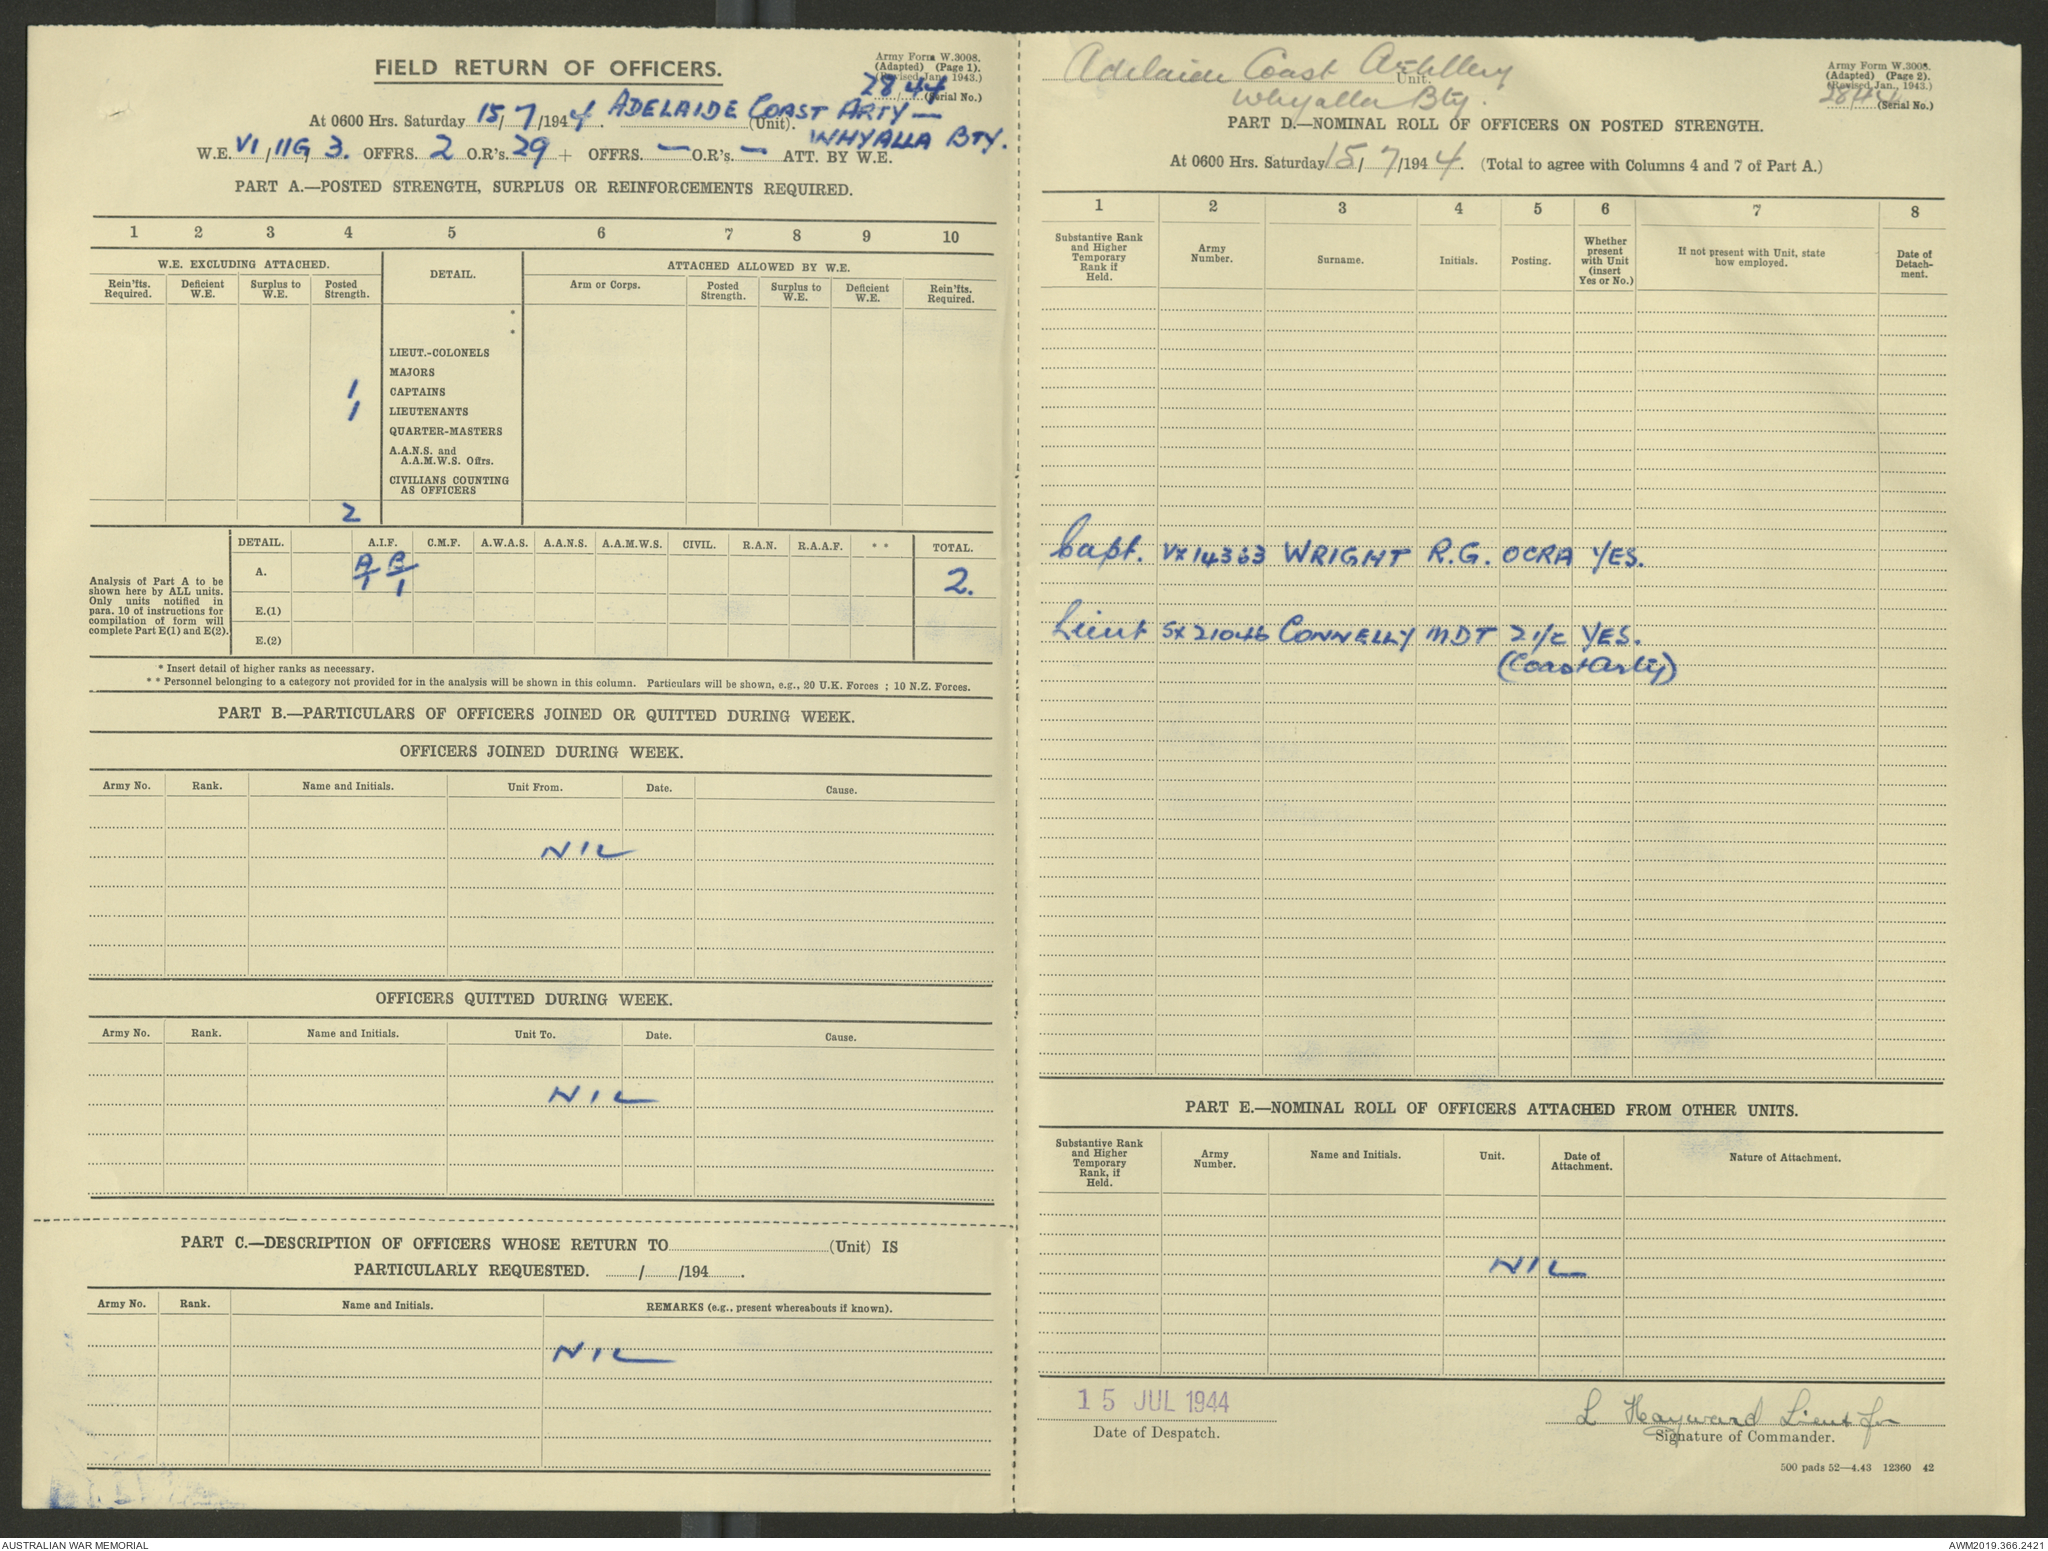 FIELD RETURN OF OFFICERS.
Army Form W.3008.
(Adapted) (Page 1)
(Revised Jan., 1943.)
28 / 44 (Serial No.)
At 0600 Hrs. Saturday 15/7/1944. ADELAIDE COAST ARTY — (Unit).
WHYALLA BTY.
W.E. VI/IIG/3. OFFRS. 2 O.R's. 29 + OFFRS. — O.R's. — ATT. BY W.E.
PART A.—POSTED STRENGTH, SURPLUS OR REINFORCEMENTS REQUIRED.
1 2 3 4 5 6 7 8 9 10
W.E. EXCLUDING ATTACHED. DETAIL. ATTACHED ALLOWED BY W.E.
Rein'fts. Required. Deficient W.E. Surplus to W.E. Posted Strength. Arm or Corps. Posted Strength. Surplus to W.E. Deficient W.E. Rein'fts. Required.
*
*
LIEUT.-COLONELS
MAJORS
1 CAPTAINS
1 LIEUTENANTS
QUARTER-MASTERS
A.A.N.S. and
A.A.M.W.S. Offrs.
CIVILIANS COUNTING
AS OFFICERS
2
DETAIL. A.I.F. C.M.F. A.W.A.S. A.A.N.S. A.A.M.W.S. CIVIL. R.A.N. R.A.A.F. * * TOTAL.
Analysis of Part A to be
shown here by ALL units.
Only units notified in
para. 10 of instructions for
compilation of form will
complete Part E(1) and E(2).
A. A/1 B/1 2.
E.(1)
E.(2)
* Insert detail of higher ranks as necessary.
* * Personnel belonging to a category not provided for in the analysis will be shown in this column. Particulars will be shown, e.g., 20 U.K. Forces ; 10 N.Z. Forces.
PART B.—PARTICULARS OF OFFICERS JOINED OR QUITTED DURING WEEK.
OFFICERS JOINED DURING WEEK.
Army No. Rank. Name and Initials. Unit From. Date. Cause.
NIL
OFFICERS QUITTED DURING WEEK.
Army No. Rank. Name and Initials. Unit To. Date. Cause.
NIL
PART C.—DESCRIPTION OF OFFICERS WHOSE RETURN TO (Unit) IS
PARTICULARLY REQUESTED. / /194 .
Army No. Rank. Name and Initials. REMARKS (e.g., present whereabouts if known).
NIL
Adelaide Coast Artillery Unit.
Whyalla Bty.
Army Form W.3008.
(Adapted) (Page 2).
(Revised Jan., 1943.)
28/44 (Serial No.)
PART D.—NOMINAL ROLL OF OFFICERS ON POSTED STRENGTH.
At 0600 Hrs. Saturday 15/7/1944. (Total to agree with Columns 4 and 7 of Part A.)
1 2 3 4 5 6 7 8
Substantive Rank and Higher Temporary Rank if Held. Army Number. Surname. Initials. Posting. Whether present with Unit (insert Yes or No.) If not present with Unit, state how employed. Date of Detachment.
Capt. VX14363 WRIGHT R.G. OCRA YES.
Lieut SX21046 CONNELLY MDT 2 i/c YES.
(Coast Arty)
PART E.—NOMINAL ROLL OF OFFICERS ATTACHED FROM OTHER UNITS.
Substantive Rank and Higher Temporary Rank, if Held. Army Number. Name and Initials. Unit. Date of Attachment. Nature of Attachment.
NIL
15 JUL 1944
Date of Despatch.
L Hayward Lieut for
Signature of Commander.
500 pads 52—4.43 12360 42
AUSTRALIAN WAR MEMORIAL
AWM2019.366.2421